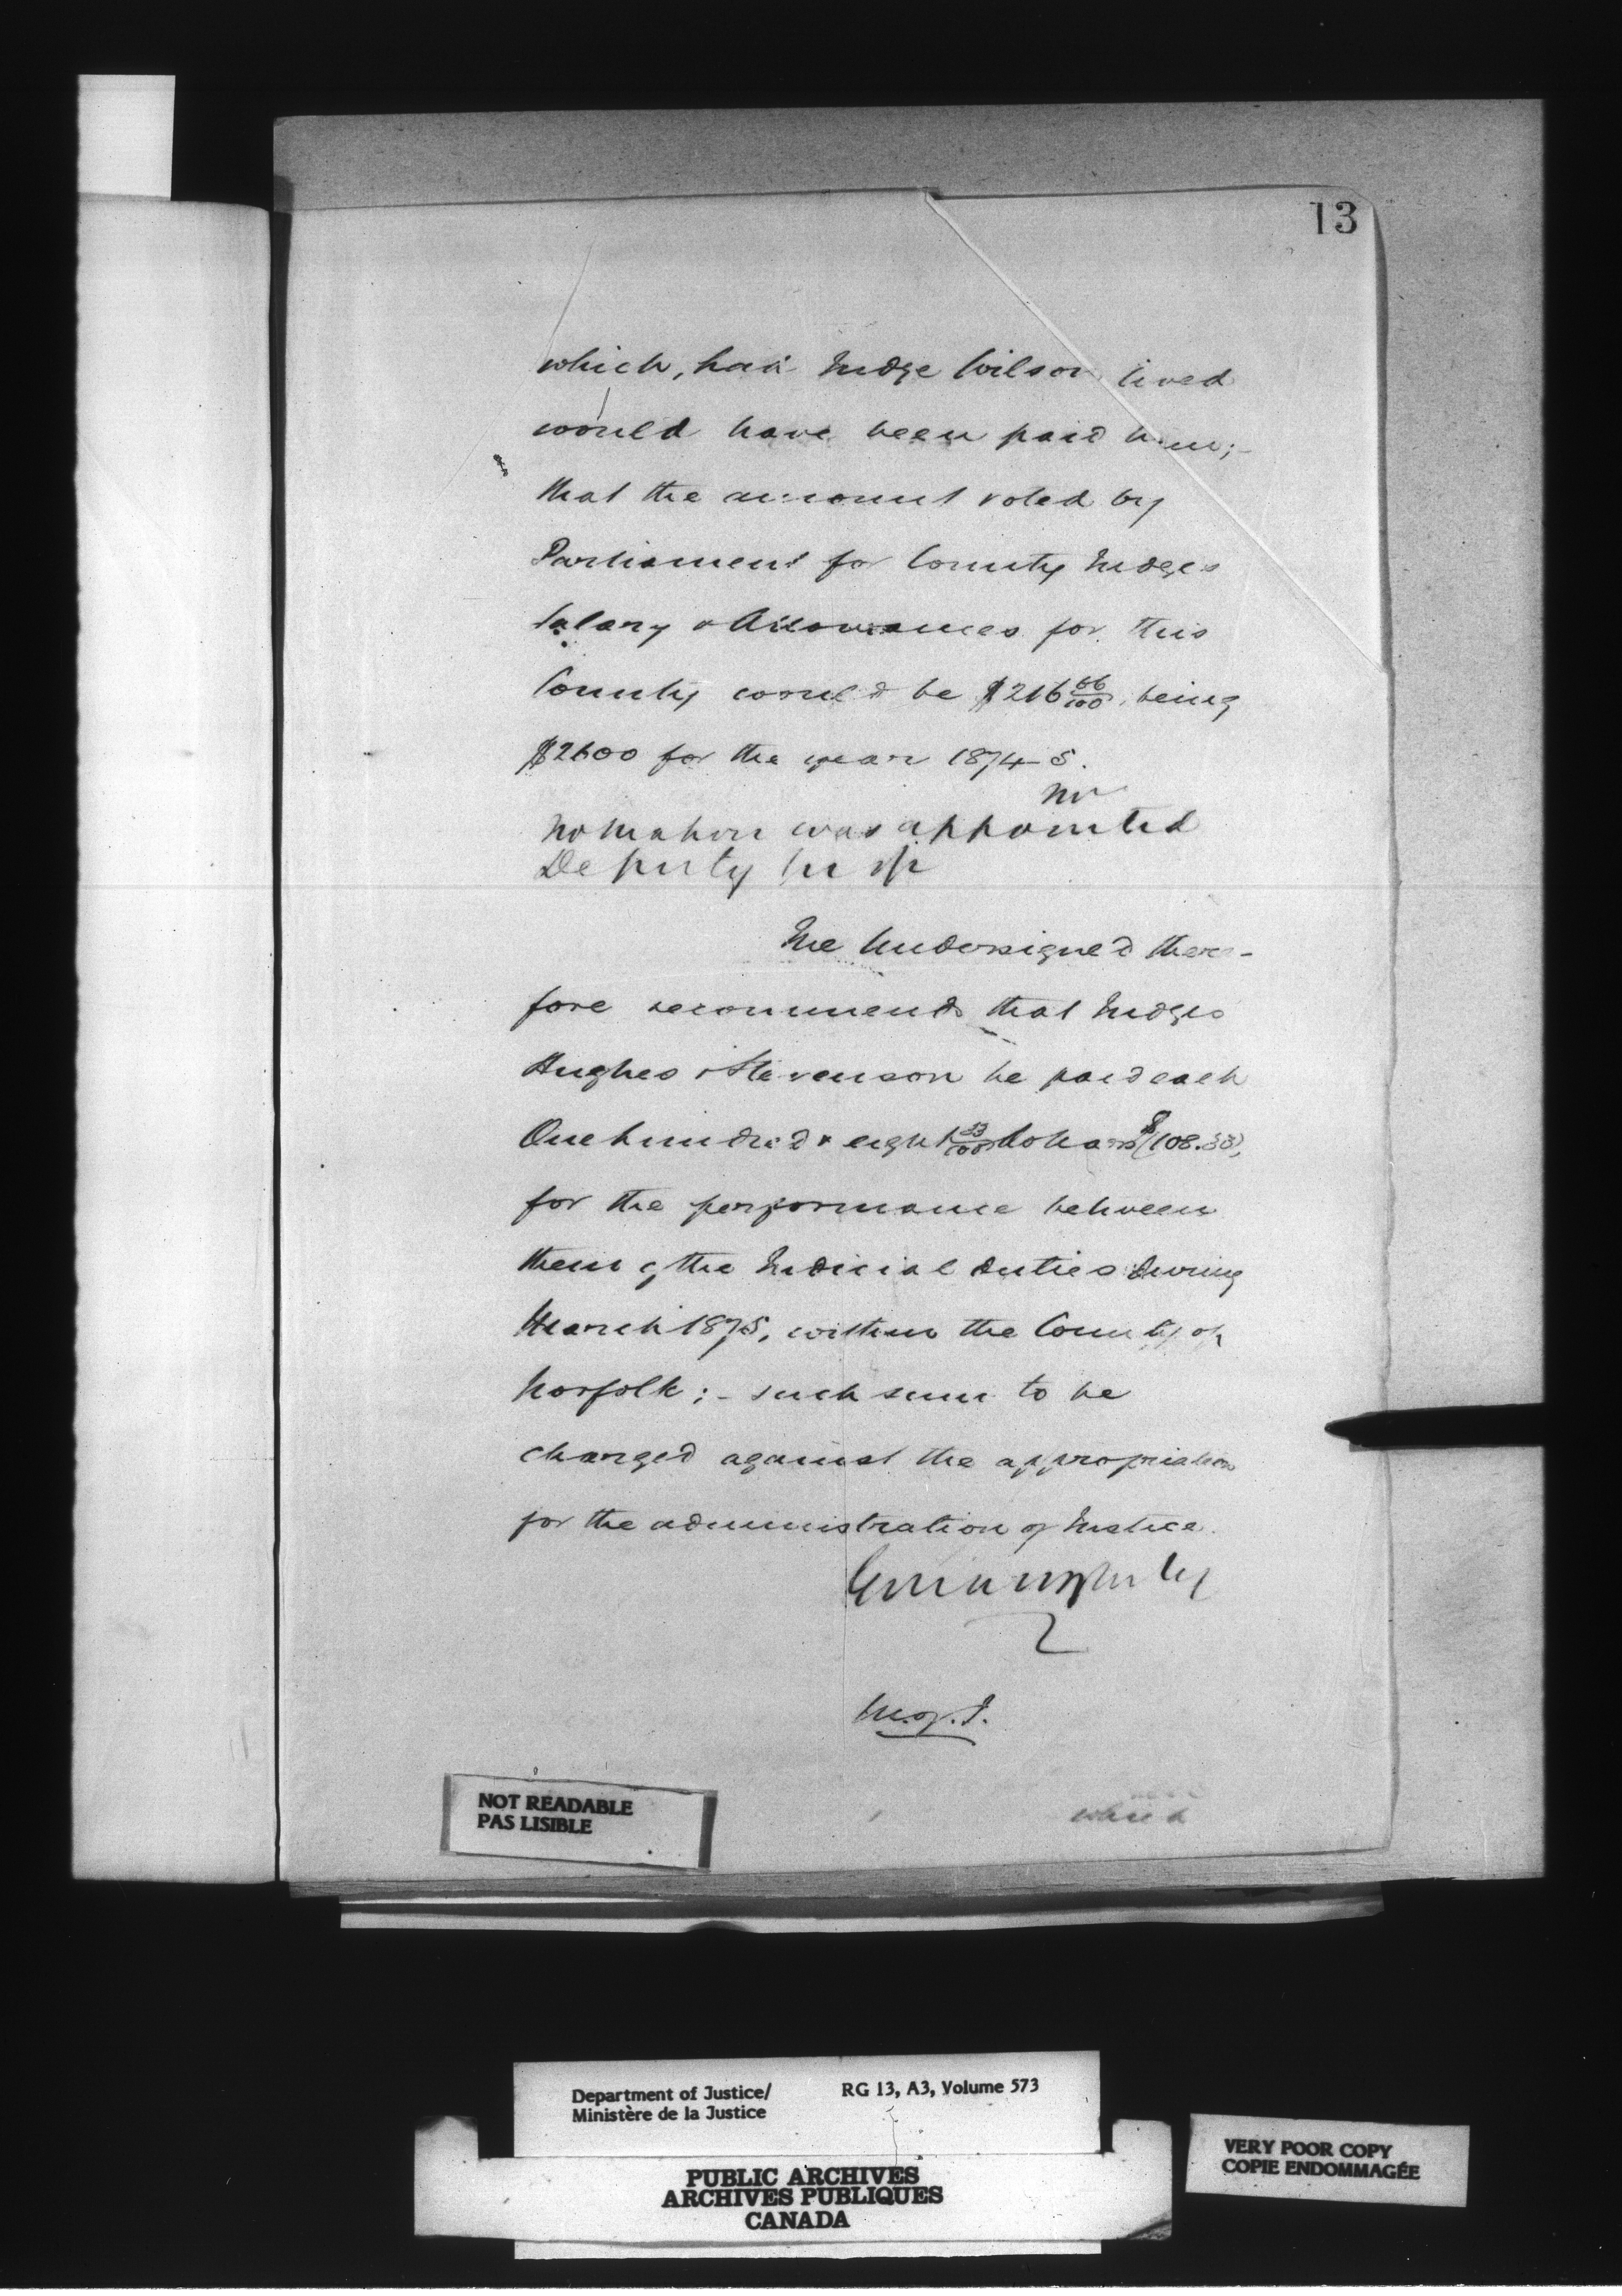 13
which, had Judge Wilson lived
would have been paid him;-
that the amount voted by
Parliament for County Judges
Salary & Allowances for this
County would be $216 66/100, being
$2600 for the year 1874-5.
no
was appointed
Deputy
The Undersigned there-
fore recommends that Judges
Hughes & Stevenson be paid each
One hundred & eight 33/100 dollars ($108.33),
for the performance between
them of the Judicial duties during
March 1875, within the County of
Norfolk; - such sum to be
charged against the appropriation
for the administration of Justice.
M. of J.
which
NOT READABLE
PAS LISIBLE
Department of Justice/ RG 13, A3, Volume 573
Ministère de la Justice
PUBLIC ARCHIVES
ARCHIVES PUBLIQUES
CANADA
VERY POOR COPY
COPIE ENDOMMAGÉE